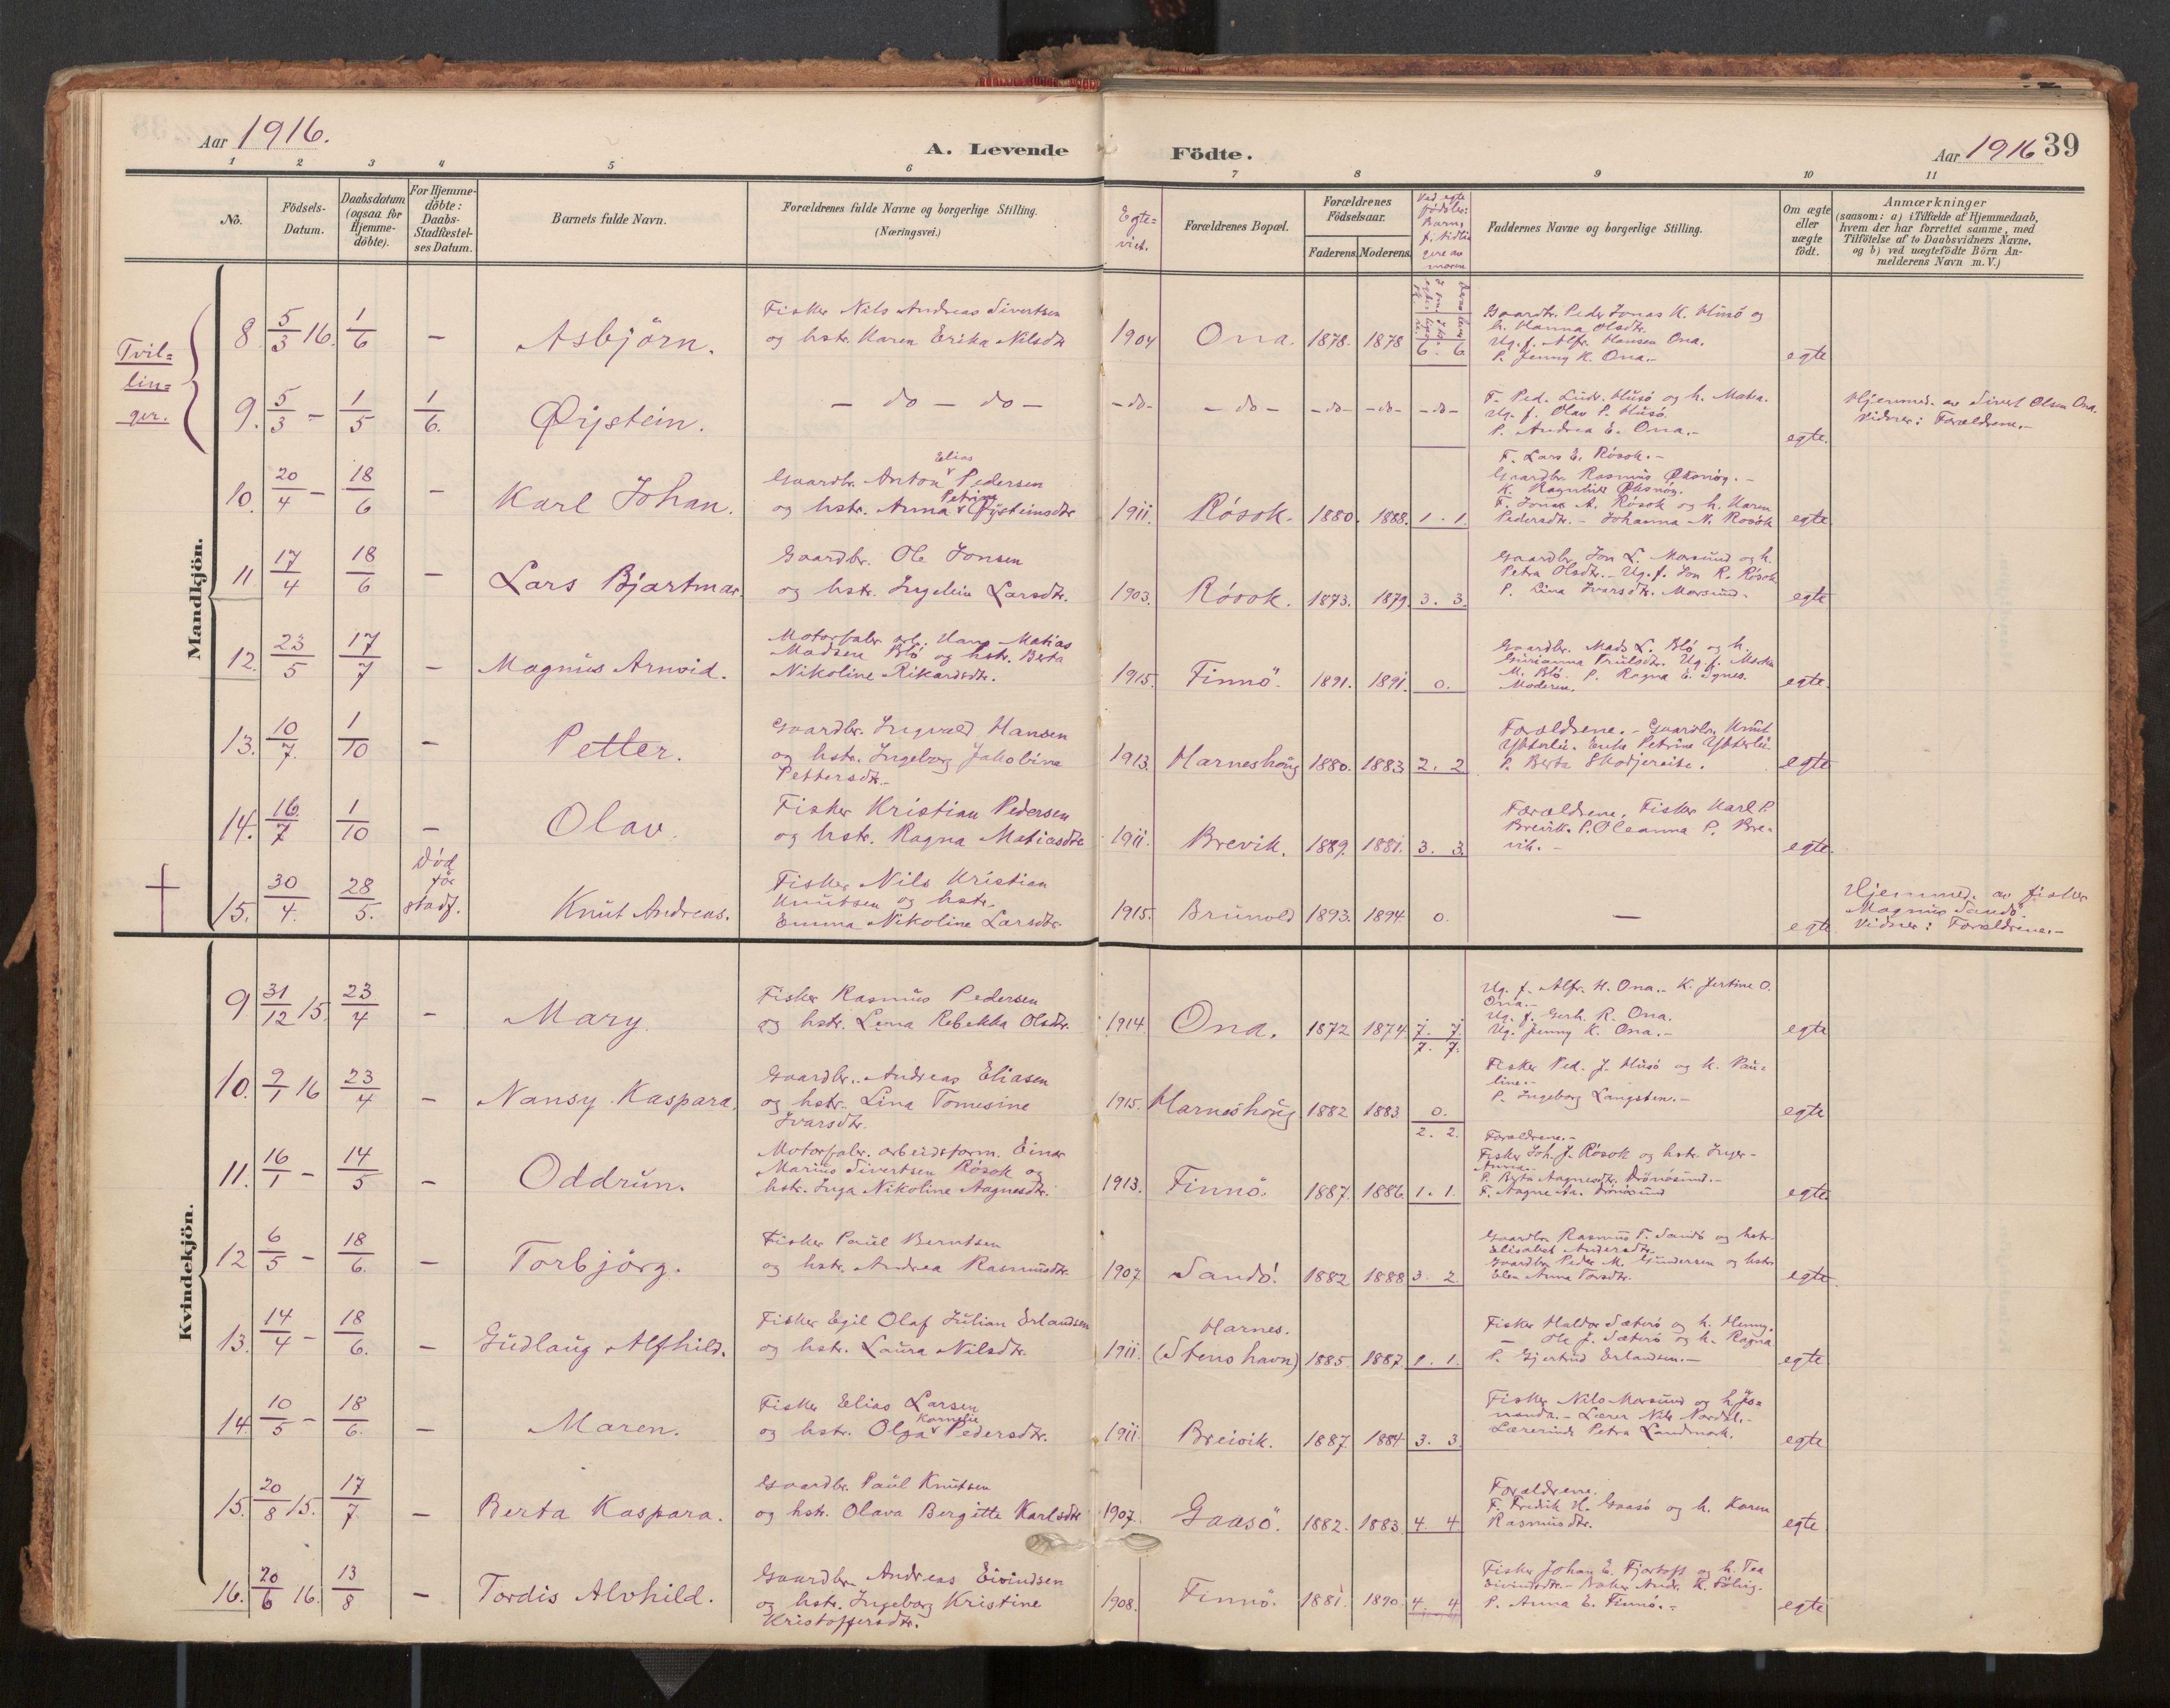 Aar 1916.
A. Levende Födte.
Aar 1916 39
1 2 3 4 5 6 7 8 9 10 11
No.
Födsels-
Datum.
Daabsdatum
(ogsaa for
Hjemme-
döbte).
For Hjemme-
döbte:
Daabs-
Stadfæstel-
ses Datum.
Barnets fulde Navn.
Forældrenes fulde Navne og borgerlige Stilling.
(Næringsvei.)
Egte=
viet.
Forældrenes Bopæl.
Forældrenes
Födselsaar.
Faderens. Moderens.
Ved egte
fødsler:
Barn,
f. tidli-
gere av
moren
Faddernes Navne og borgerlige Stilling.
Om ægte
eller
uægte
födt.
Anmærkninger
(saasom: a) i Tilfælde af Hjemmedaab,
hvem der har forrettet samme, med
Tilföielse af to Daabsvidners Navne,
og b) ved uægtefödte Börn An-
melderens Navn m. V.)
Mandkjön.
Tvil=
lin=
ger.
8 5/3 16. 1/6 – Asbjörn.
Fisker Nils Andreas Sivertsen
og hstr. Karen Erika Nilsdtr
1904 Ona. 1878. 1878 6. 6.
Gaardbr. Peder Jonas K. Husö og
h. Hanna Olsdtr.
Ug. f. Alfr. Hansen Ona.
P. Jenny K. Ona.-
egte
9. 5/3 – 1/5 1/6. Øistein.
– do – do –
- do - – do – - do - - do - - do -
F. Ped. Ludv. Husö og h. Mata.
Ug. f. Olav P. Husö.
P. Andrea E. Ona.-
egte.
Hjemmed. av Sivert Olsen Ona.
Vidner: Forældrene.-
10. 20/4 – 18/6 – Karl Johan.
Gaardbr. Anton Elias Pedersen
og hstr. Anna Petrine Øysteinsdtr
1911. Rösok. 1880. 1888. 1. 1.
F. Lars E. Rösok.-
Gaardbr. Rasmus Øksnøg.-
K. Ragnhild Øksnøg.
F. Jonas A. Rösok og h. Karen
Pedersdtr.- Johanna N. Rosök
egte
11 17/4 18/6 – Lars Bjartmar.
Gaardbr. Ole Jonsen
og hstr. Ingelein Larsdtr.
1903. Rösok. 1873. 1879. 3. 3.
Gaardbr. Jon L. Morsund og h.
Petra Olsdtr.- Ug. f. Jon R. Rösok
P. Lina Ivarsdtr. Morsund.
egte
12. 23/5 17/7 – Magnus Arnvid.
Motorfabr. arb. Hans Matias
Madsen Blö og hstr. Berta
Nikoline Rikardsdtr.
1915. Finnö. 1891. 1891. 0.
Gaardbr. Mads L. Blö og h.
Gurianna Trulsdtr. Ug. f.
M. Blö. P. Ragna E.
Moderen.
egte.
13. 10/7. 1/10 – Petter.
Gaardbr. Ingvald Hansen
og hstr. Ingeborg Jakobina
Pettersdtr.-
1913. Harneshoug 1880. 1883 2. 2
Forældrene.- Gaardbr. Knut
Ytterli. Enke Petrine Ytterli
P. Berta Skodjereite.
egte
14. 16/7 1/10 – Olav.
Fisker Kristian Pedersen
og hstr. Ragna Matiasdtr
1911. Brevik. 1889. 1881. 3. 3.
Forældrene. Fisker Karl P.
Breivik. P. Oleanna P. Bre-
vik.-
egte.
15. 30/4. 28/5. Död
för
stadf. Knut Andreas.
Fisker Nils Kristian
Knutsen og hstr.
Emma Nikoline Larsdtr.
1915. Brunvold 1893. 1894 0. –
egte
Hjemmed. av fisker
Magnus Sandö.
Vidner: Forældrene.-
Kvindekjön.
9 31/12 15. 23/4 – Mary.
Fisker Rasmus Pedersen
og hstr. Lena Rebekka Olsdtr.
1914 Ona. 1872 1874. 7. 7.
7. 7.
Ug. f. Alfr. H. Ona.- K. Jertine O.
Ona.-
Ug. f. Gerh. R. Ona.
Ug. Jenny K. Ona.-
egte
10. 9/1 16 23/4 – Nansy Kaspara.
Gaardbr. Andreas Eliasen
og hstr. Lina Tomesine
Ivarsdtr.
1915. Harneshoug 1882 1883 0.
2. 2.
Fisker Ped. J. Husö og h. Pau-
line.-
P. Ingeborg Langsten.-
egte
11. 16/1 – 14/5 – Oddrun.
Motorfabr. arbeidsform. Einar
Marius Sivertsen Rösok og
hstr. Inga Nikoline Aagnesdtr.
1913. Finnö. 1887. 1886. 1. 1.
Forældrene.-
Fisker Joh. J. Rösok og hstr. Inger-
Anna.-
P. Berta Aagnesdtr. Drönösund.-
F. Aagne Aa. Drönösund
egte
12 6/5 – 18/6. – Torbjörg.
Fisker Paul Berntsen
og hstr. Andrea Rasmusdtr.
1907. Sandö. 1882 1888 3. 2.
Gaardbr. Rasmus T. Sandö og hstr.
Elisabet Andersdtr.
Gaardbr. Peder M. Gundersen og hstr
Elen Anna Torsdtr.
egte
13. 14/4 – 18/6. – Gudlaug Alfhild.
Fisker Egil Olaf Julian Erlandsen
og hstr. Laura Nilsdtr.
1911. Harnes.
(Stenshavn) 1885. 1887 1. 1.
Fisker Haldor Sæterö og h. Henny.
– Ole J. Sæterö og h. Ragna
P. Gjertrud Erlandsen.-
egte
14. 10/5 – 18/6. – Maren.
Fisker Elias Larsen
og hstr. Olga Kornelie Pedersdtr.
1911. Breivik. 1887. 1884. 3. 3.
Fisker Nils Morsund og h.
Lærer Nils Nordal.-
Lærerinde Petra Landmark.
egte
15. 20/8 15. 17/7 – Berta Kaspara.
Gaardbr. Paul Knutsen
og hstr. Olava Bergitte Karlsdtr
1907. Gaasö. 1882. 1883. 4. 4
Forældrene.
F. Fredik H. Gaasö og h. Karen
Rasmusdtr.
egte
16. 20/6 16. 13/8 – Tordis Alvhild.
Gaardbr. Andreas Eivindsen
og hstr. Ingeborg Kristine
Kristoffersdtr.
1908. Finnö. 1881. 1890. 4. 4
Fisker Johan E. Fjørtoft og h. Tea
Eivindsdtr.- Andr. R.
P. Anna E. Finnö.-
egte